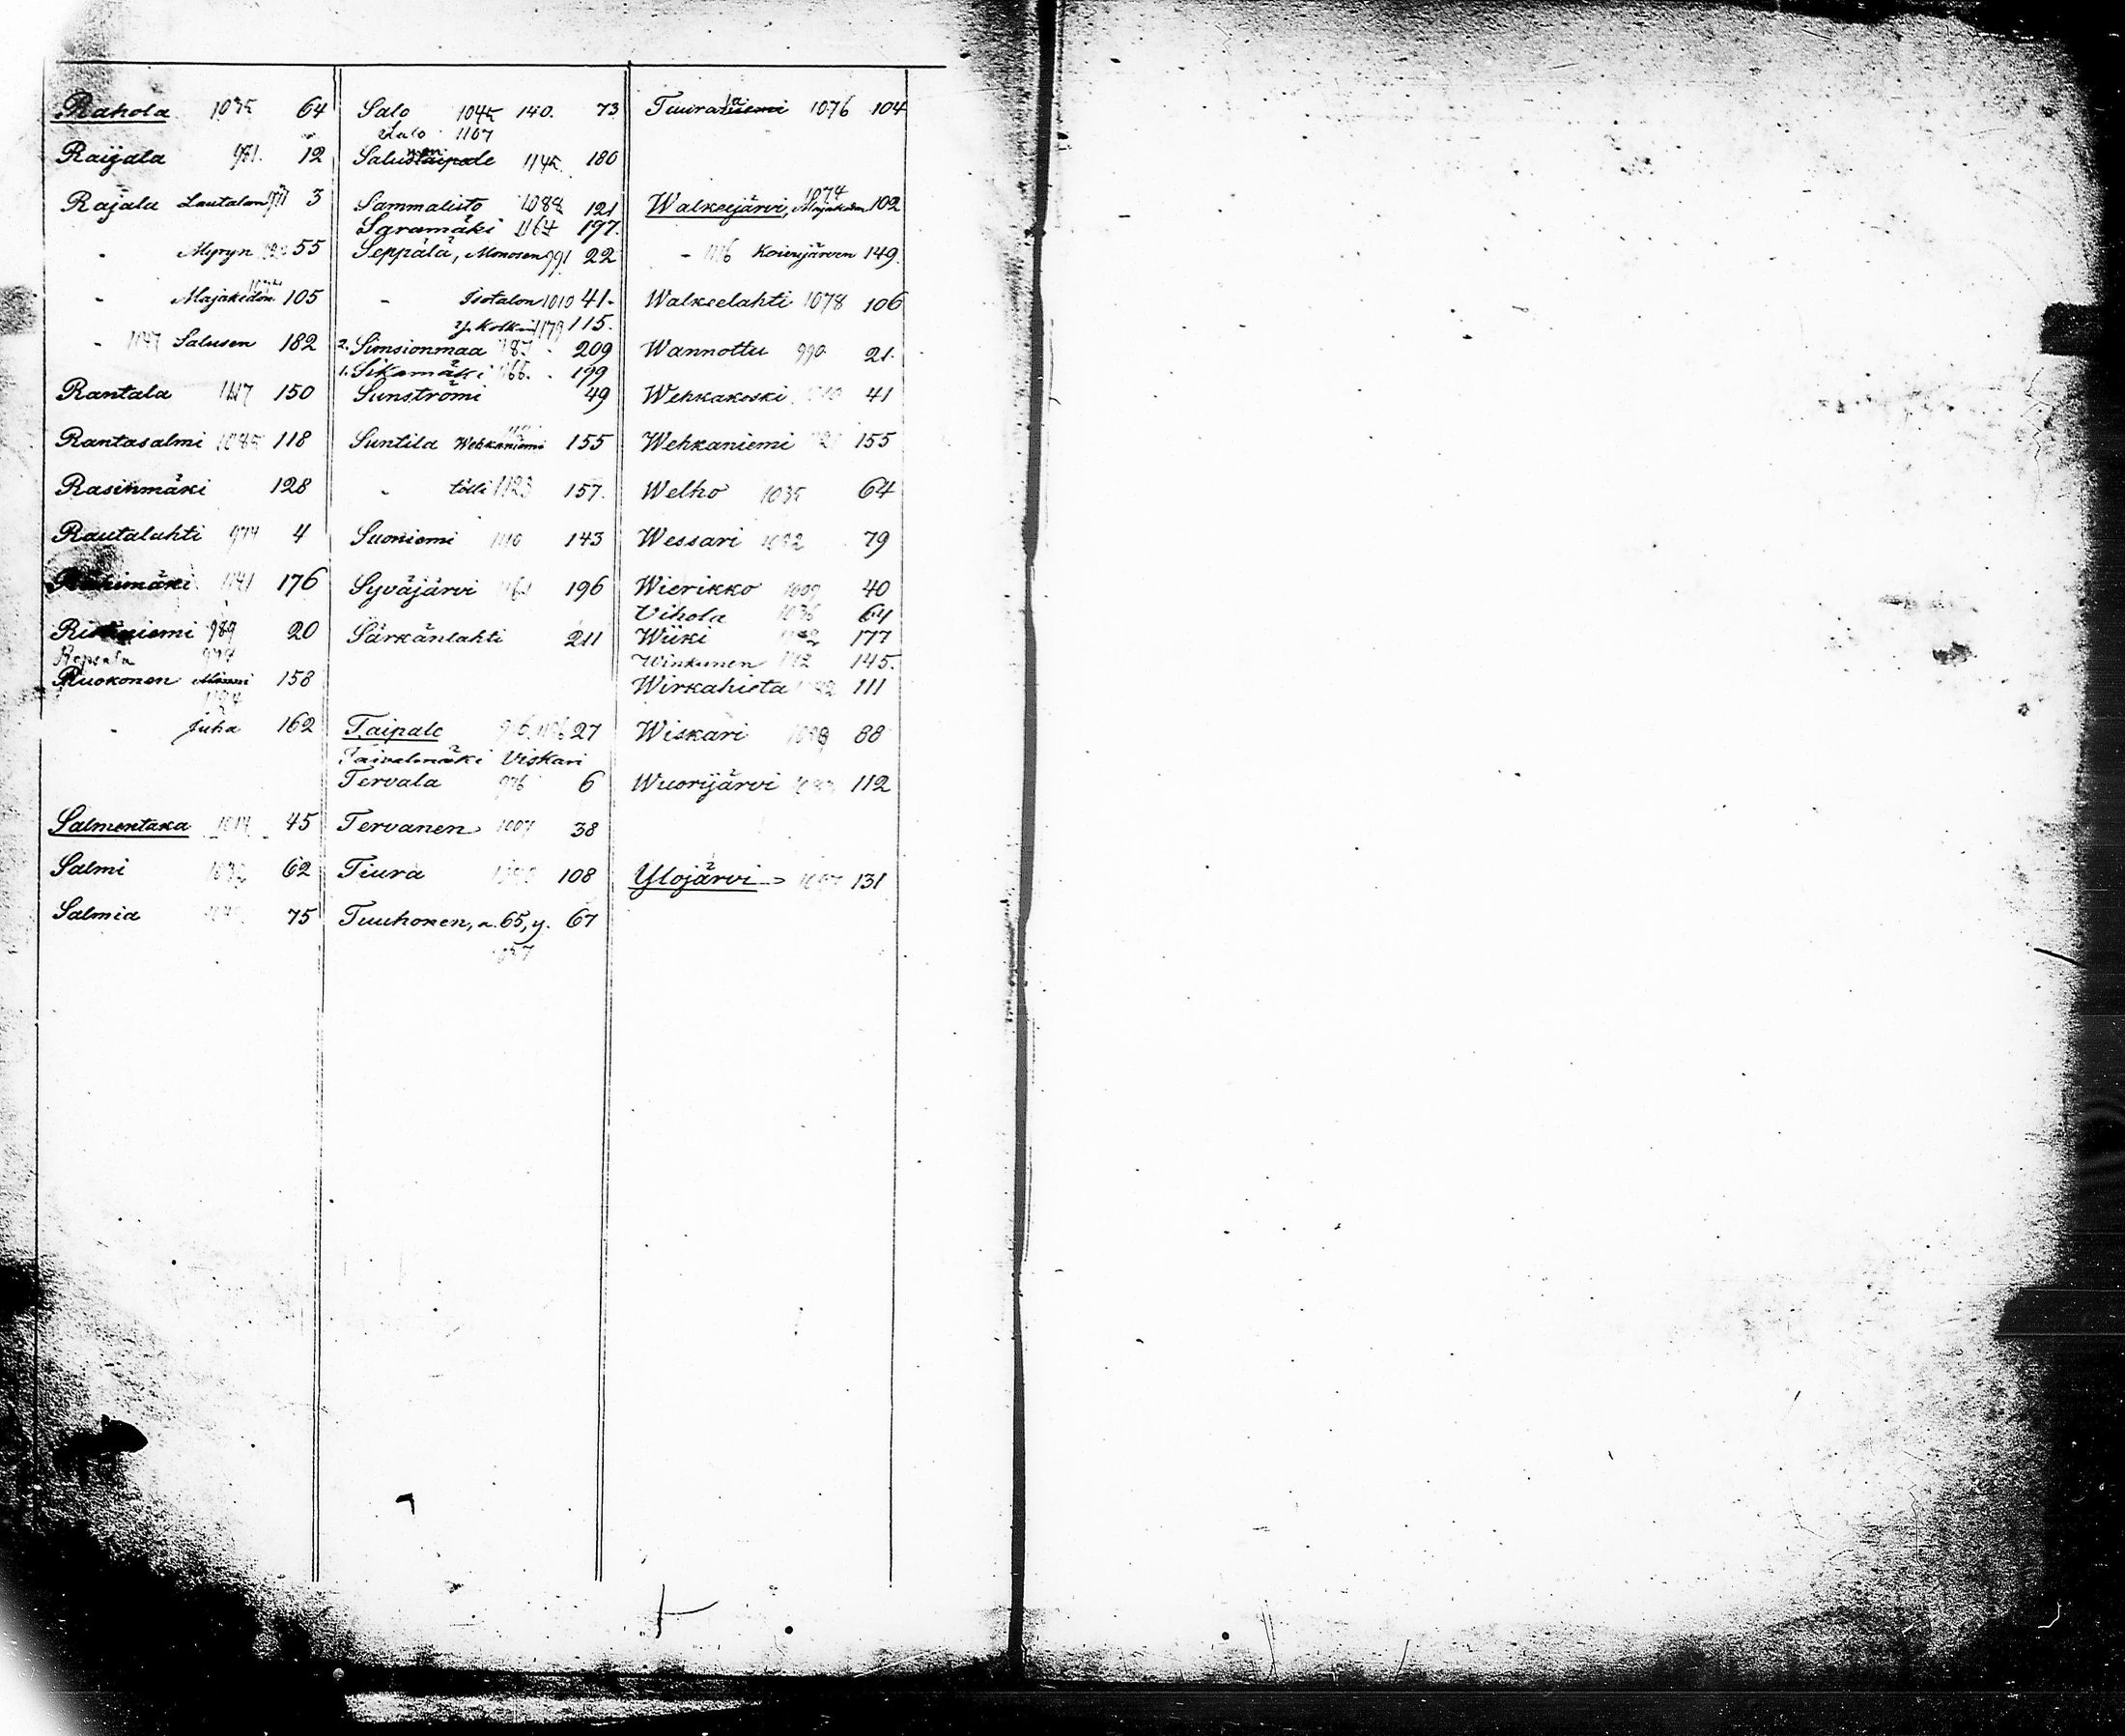 Rahola 1035 64
Raijala 981. 12
Rajala Lautalan 3
" Myryn 55
" Majakedon 105
" 1147 Salusen 182
Rantala 1117 150
Rantasalmi 1085 118
Rasinmäki 128
Rautalahti 974 4
1141 176
989 20
Repsala
Ruokonen 158
" Juha 162
Salmentaka 45
Salmi 1032 62
Salmia 75
Salo 1045 140. 73
Salo 1107
1145. 180
Sammalisto 1088 121
Saramäki 1164 197.
Seppälä, Monosen 991 22
" Isotalon 1010 41.
Y. Kolkin 1179 115.
2. Simsionmaa 209
1. Sikamäki 1166. 199
Sunströmi 49
Suntila Wehkaniemi 155
" tölli 1123 157.
Suoniemi 1110 143
Syväjärvi 196
Särkänlahti 211
Taipale 27
Taivalmäki Viskari
Tervala 976 6
Tervanen 1007 38
Tiura 108
Tuuhonen, a. 65, y. 67
Tuurala 1076 104
Walkeejärvi, 1074 102
" 1116 Koivujärven 149.
Walkeelahti 1078 106
Wannottu 990 21.
Wehkakoski 41
Wehkaniemi 155
Welho 1035 64
Wessari 79
Wierikko 1009 40
Vihola 1036 64
Wiiki 177
Winkunen 145.
Wirkahieta 111
Wiskari 88
Wuorijärvi 112
Ylöjärvi 131